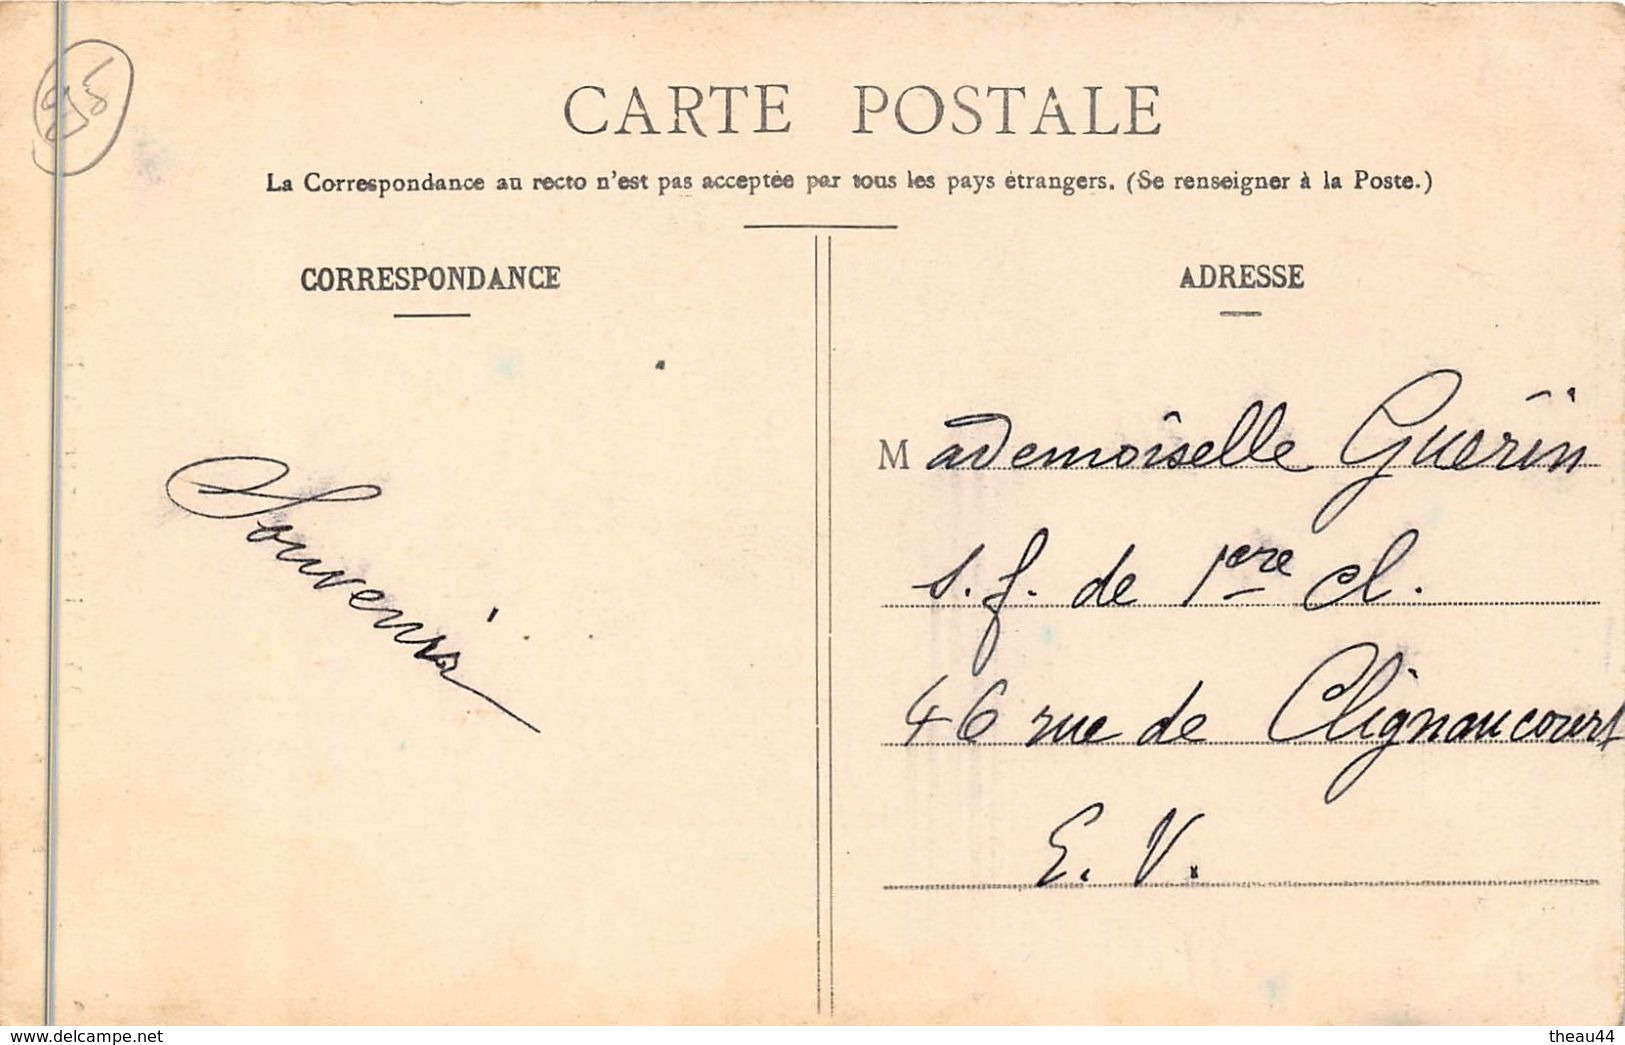 CARTE POSTALE
La Correspondance au recto n'est pas acceptée par tous les pays étrangers. (Se renseigner à la Poste.)
CORRESPONDANCE
Souvenir
ADRESSE
Mademoiselle Guérin
s. f. de 1ere cl.
46 rue de Clignancourt
E. V.
www.delcampe.net
theau44